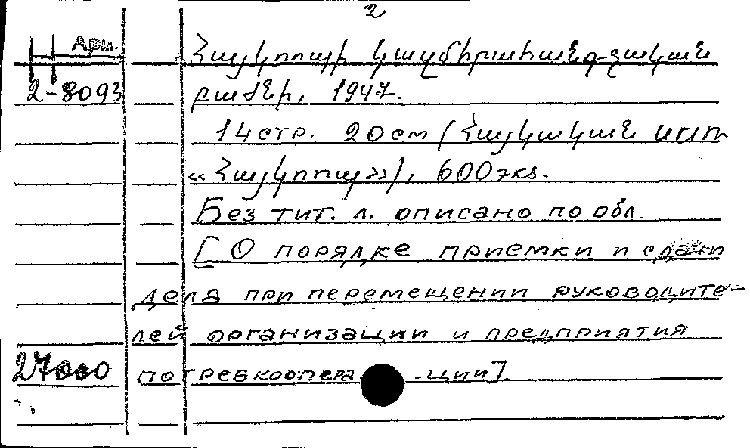 2
Арм.
Հայկոոպի կազմիրահանգչական
2-8093 բաժնի, 1947.
14 стр. 20 см (Հայկական ՍՍՌ
«Հայկոոպ»), 600 экз.
Без тит. л. описано по обл.
[О порядке приемки и сдачи
дела при перемещении руководите-
лей организации и предприятия
27000 потребкоопера -ции]